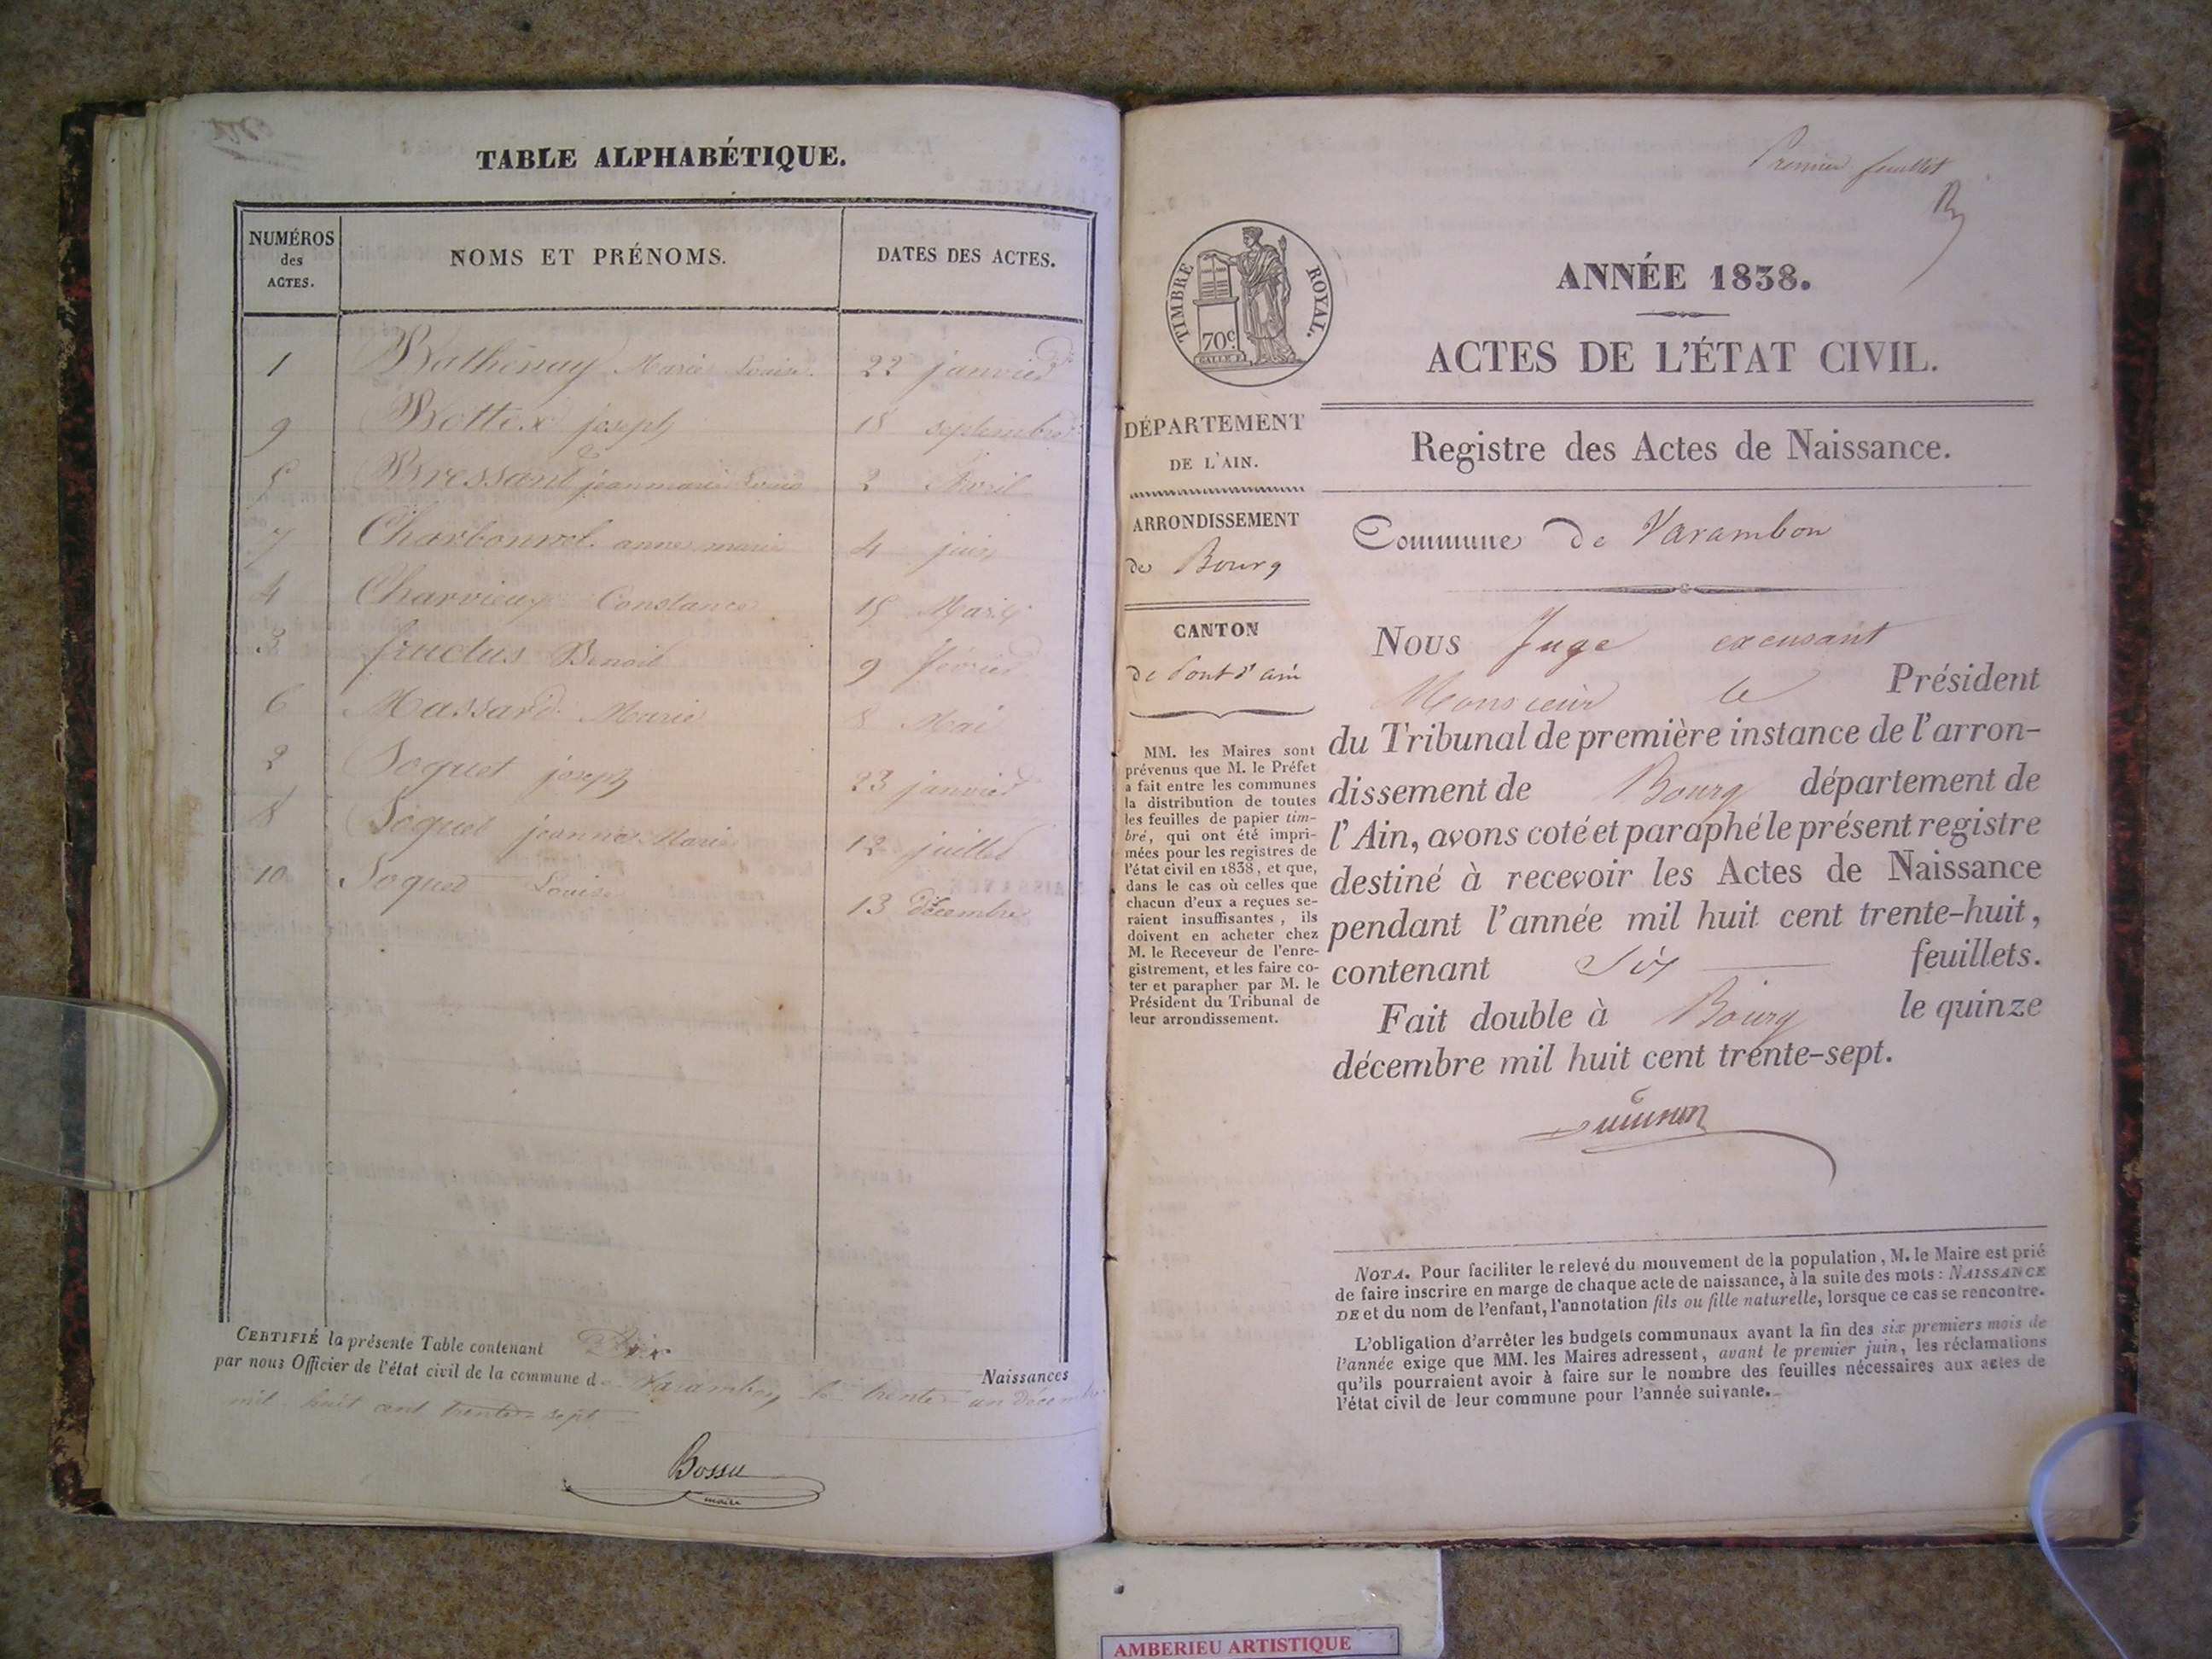 TABLE ALPHABÉTIQUE.
NUMÉROS
des
ACTES.
NOMS ET PRÉNOMS.
DATES DES ACTES.
1 Bathenay Marie Louise 22 janvier
9 Bottex joseph 18 septembre
5 Bressand jeanmarie Louis 2 Avril
7 Charbonnel anne marie 4 juin
4 Charvieux Constance 15 Mars
3 fructus Benoit 9 février
6 Massard Marie 8 Mai
2 Soquet joseph 23 janvier
8 Soquet jeanne Marie 12 juillet
10 Soquet Louise 13 décembre
CERTIFIÉ la présente Table contenant Dix Naissances
par nous Officier de l'état civil de la commune de Varambon le trente-un décembre
mil huit cent trente-sept
Bossu
maire
Premier feuillet
TIMBRE ROYAL.
70c
ANNÉE 1838.
ACTES DE L'ÉTAT CIVIL.
Registre des Actes de Naissance.
Commune de Varambon
DÉPARTEMENT
DE L'AIN.
ARRONDISSEMENT
de Bourg
CANTON
de Pont d'ain
MM. les Maires sont
prévenus que M. le Préfet
a fait entre les communes
la distribution de toutes
les feuilles de papier tim-
bré, qui ont été impri-
mées pour les registres de
l'état civil en 1838, et que,
dans le cas où celles que
chacun d'eux a reçues se-
raient insuffisantes, ils
doivent en acheter chez
M. le Receveur de l'enre-
gistrement, et les faire co-
ter et parapher par M. le
Président du Tribunal de
leur arrondissement.
Nous Juge excusant
Monsieur le Président
du Tribunal de première instance de l'arron-
dissement de Bourg département de
l'Ain, avons coté et paraphé le présent registre
destiné à recevoir les Actes de Naissance
pendant l'année mil huit cent trente-huit,
contenant Six feuillets.
Fait double à Bourg le quinze
décembre mil huit cent trente-sept.
NOTA. Pour faciliter le relevé du mouvement de la population, M. le Maire est prié
de faire inscrire en marge de chaque acte de naissance, à la suite des mots: NAISSANCE
DE et du nom de l'enfant, l'annotation fils ou fille naturelle, lorsque ce cas se rencontre.
L'obligation d'arrêter les budgets communaux avant la fin des six premiers mois de
l'année exige que MM. les Maires adressent, avant le premier juin, les réclamations
qu'ils pourraient avoir à faire sur le nombre des feuilles nécessaires aux actes de
l'état civil de leur commune pour l'année suivante.
AMBERIEU ARTISTIQUE